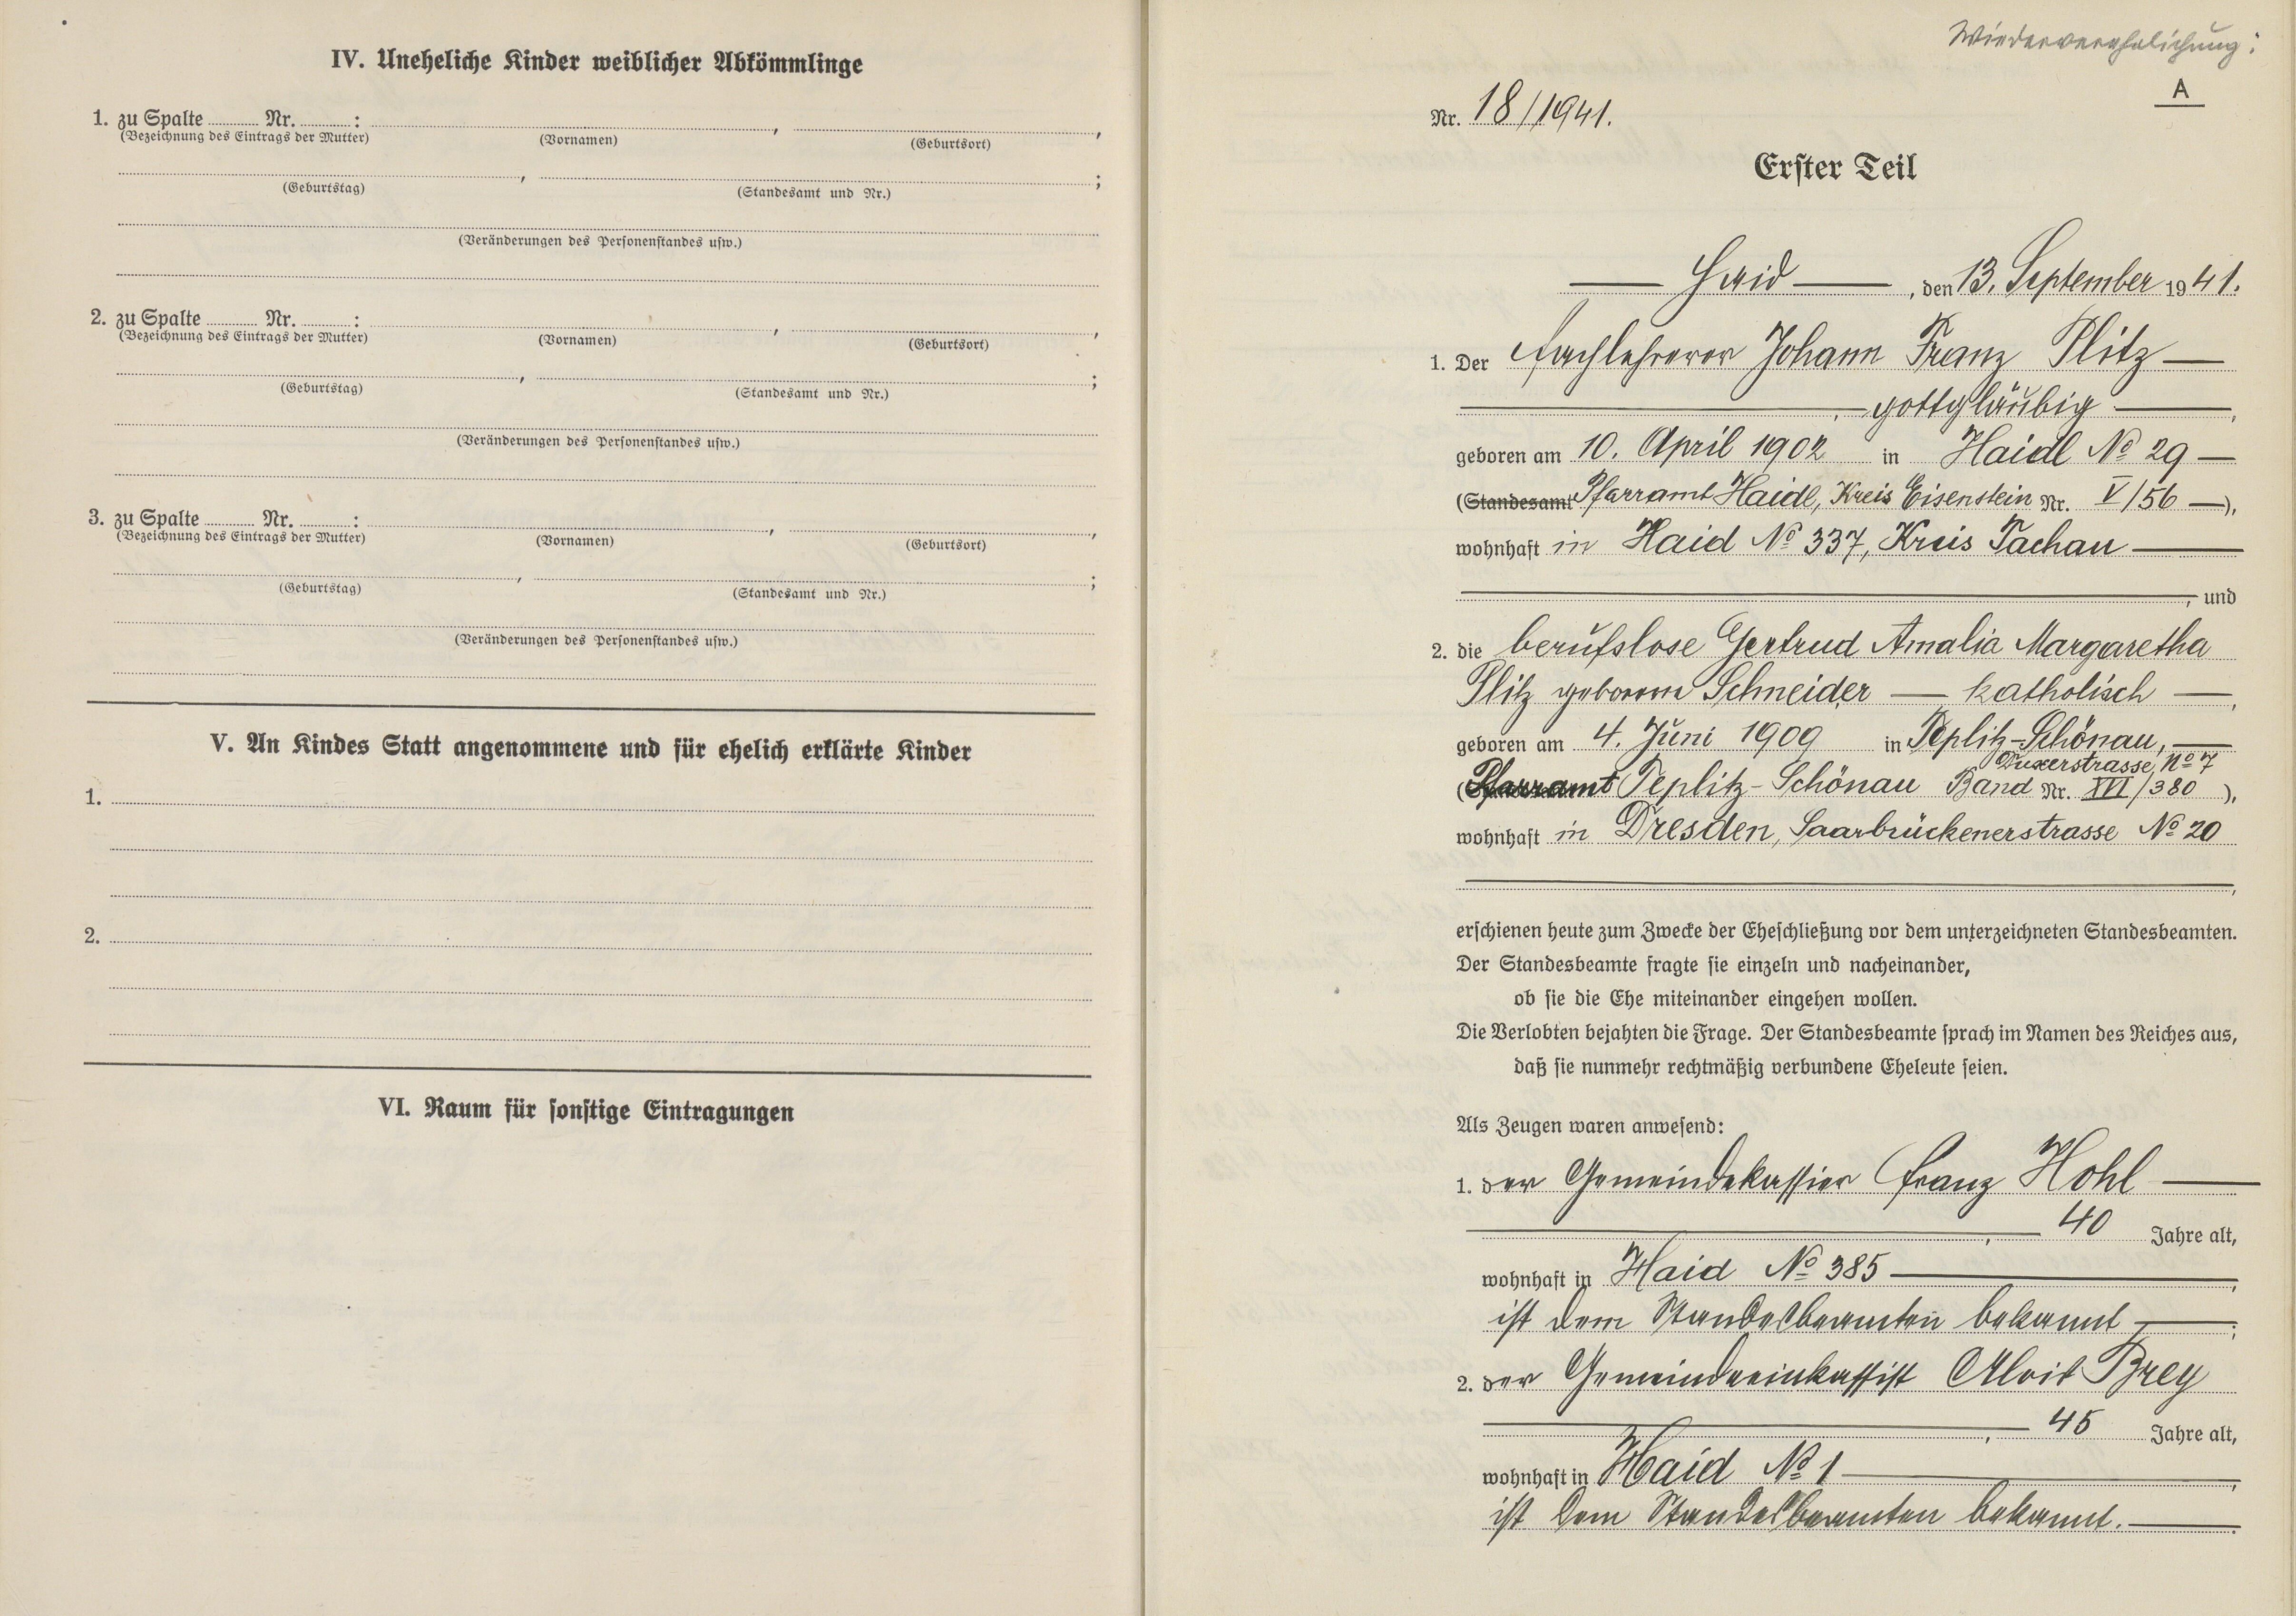 IV. Uneheliche Kinder weiblicher Abkömmlinge
1. zu Spalte ........ Nr. ........ :
(Bezeichnung des Eintrags der Mutter) (Vornamen) , (Geburtsort) ,
(Geburtstag) , (Standesamt und Nr.) ;
(Veränderungen des Personenstandes usw.)
2. zu Spalte ........ Nr. ........ :
(Bezeichnung des Eintrags der Mutter) (Vornamen) , (Geburtsort) ,
(Geburtstag) , (Standesamt und Nr.) ;
(Veränderungen des Personenstandes usw.)
3. zu Spalte ........ Nr. ........ :
(Bezeichnung des Eintrags der Mutter) (Vornamen) , (Geburtsort) ,
(Geburtstag) , (Standesamt und Nr.) ;
(Veränderungen des Personenstandes usw.)
V. An Kindes Statt angenommene und für ehelich erklärte Kinder
1.
2.
VI. Raum für sonstige Eintragungen
Wiederverehelichung:
A
Nr. 18/1941.
Erster Teil
Haid, den 13. September 1941.
1. Der Fachlehrerer Johann Franz Plitz
, gottgläubig ,
geboren am 10. April 1902 in Haidl № 29
(Standesamt Pfarramt Haidl, Kreis Eisenstein Nr. V/56),
wohnhaft in Haid № 337, Kreis Tachau
, und
2. die berufslose Gertrud Amalia Margaretha
Plitz geborene Schneider — katholisch ,
geboren am 4. Juni 1909 in Teplitz-Schönau,
Duxerstrasse № 7
(Pfarramt Teplitz-Schönau Band Nr. XVI/380),
wohnhaft in Dresden, Saarbrückenerstrasse № 20
,
erschienen heute zum Zwecke der Eheschließung vor dem unterzeichneten Standesbeamten.
Der Standesbeamte fragte sie einzeln und nacheinander,
ob sie die Ehe miteinander eingehen wollen.
Die Verlobten bejahten die Frage. Der Standesbeamte sprach im Namen des Reiches aus,
daß sie nunmehr rechtmäßig verbundene Eheleute seien.
Als Zeugen waren anwesend:
1. der Gemeindekassier Franz Hohl
, 40 Jahre alt,
wohnhaft in Haid № 385 ,
ist dem Standesbeamten bekannt ;
2. der Gemeindeeinkassist Alois Brey
, 45 Jahre alt,
wohnhaft in Haid № 1 ,
ist dem Standesbeamten bekannt.